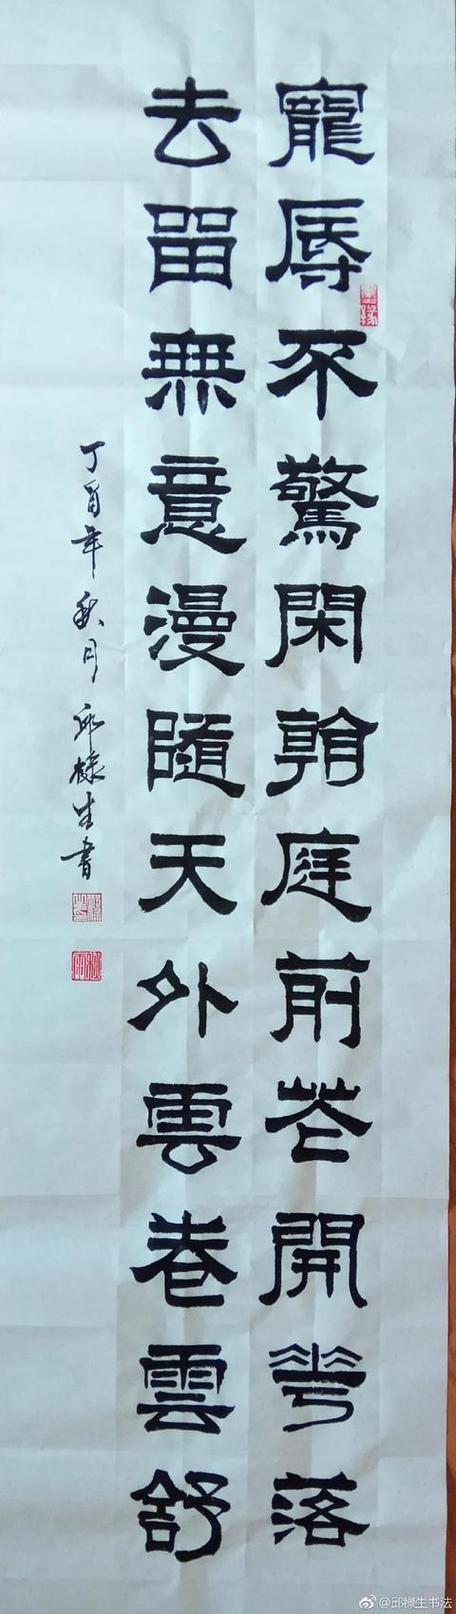 寵辱不驚閑觀庭前芲開花落
去留無意漫隨天外雲卷雲舒
丁酉年秋月邱祿生書
@邱禄生书法